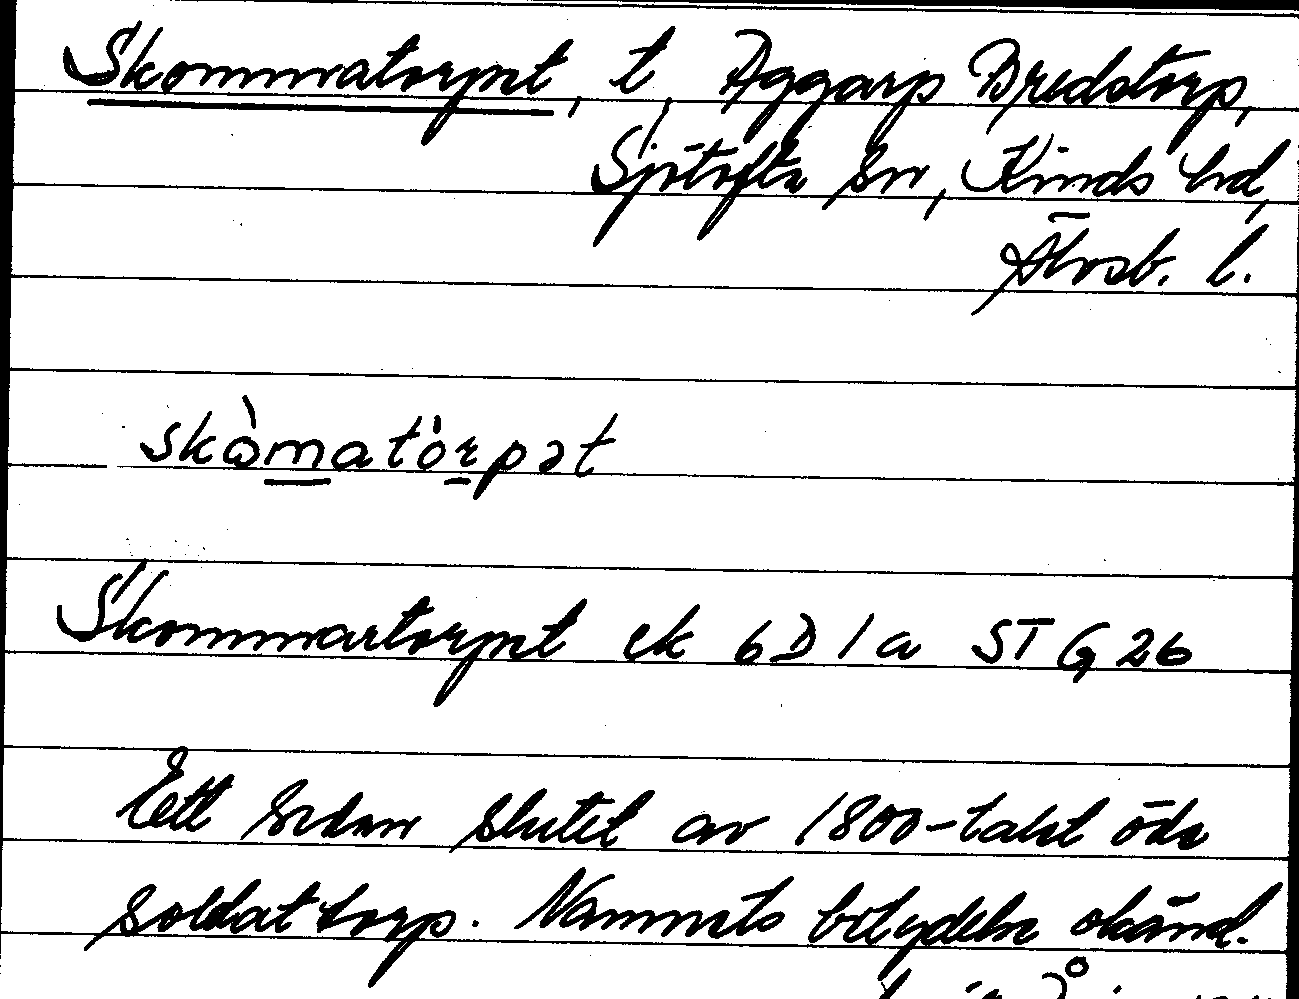 Skommatorpet, t, Aggarp Bredstorp,
Sjötofta sn, Kinds hd,
Älvsb. l.
skòmatȯrpət
Skommartorpet ek 6D 1a ST G26
Ett sedan slutet av 1800-talet öde
soldattorp. Namnets betydelse okänd.